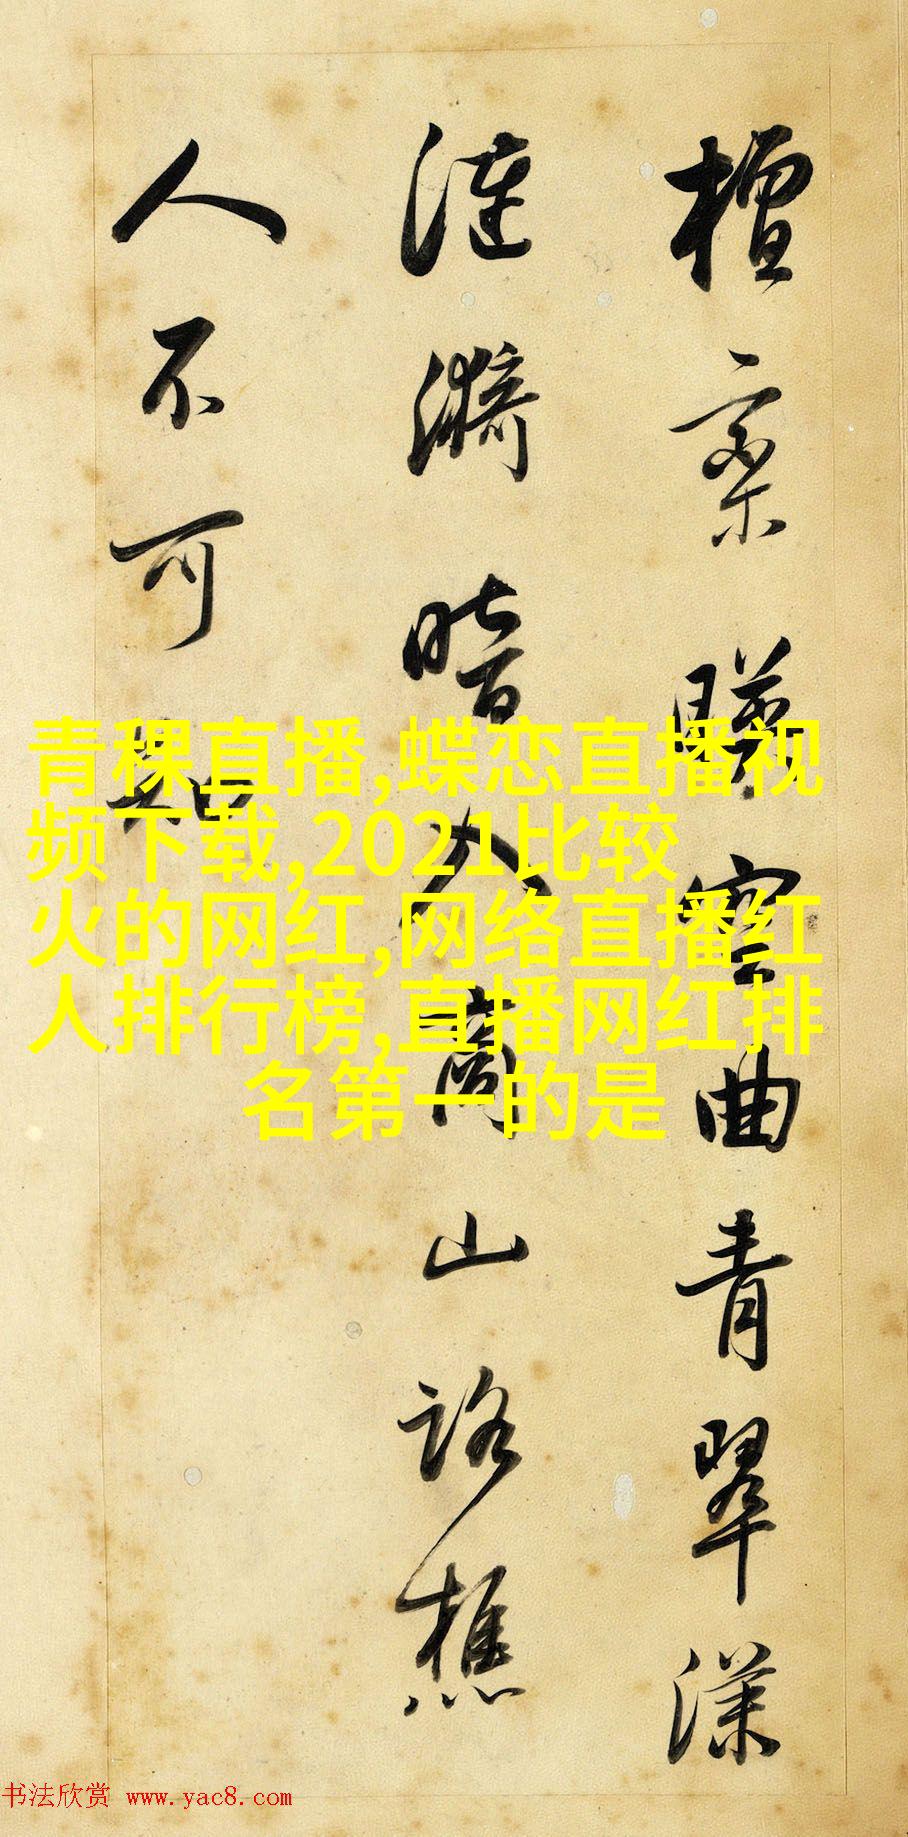 檀栾映空曲青翠漾
涟漪暗入商山路樵
人不可知
青稞直播,蝶恋直播视
频下载,2021比较
火的网红,网络直播红
人排行榜,直播网红排
名第一的是
书法欣赏 www.yac8.com